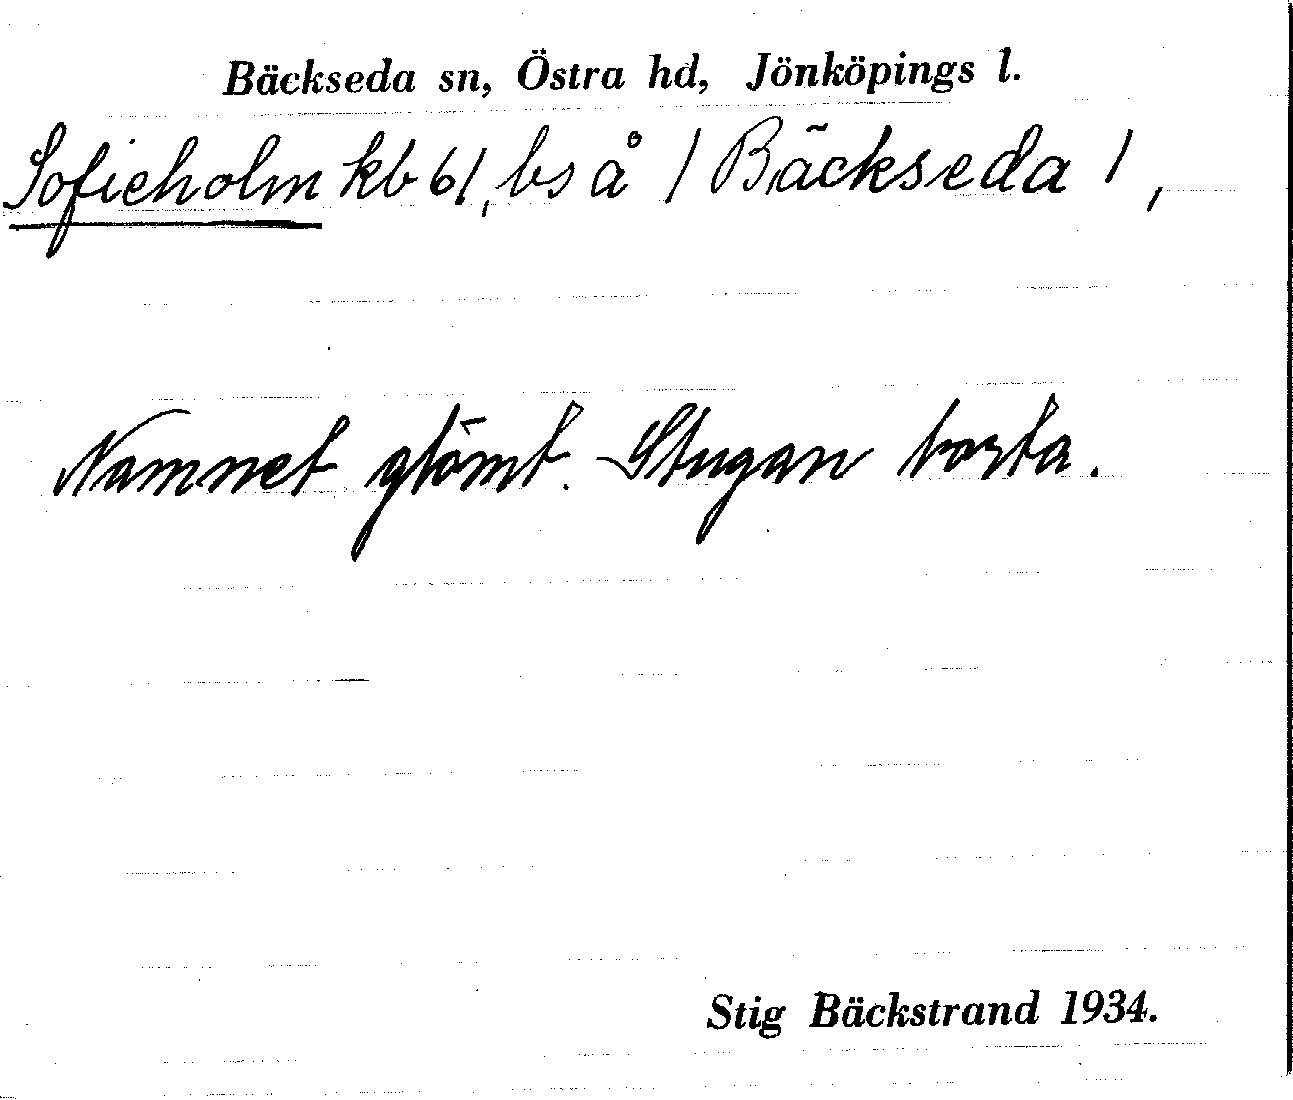 Bäckseda sn, Östra hd, Jönköpings l.
Sofieholm kb 61, bs å / Bäckseda /,
Namnet glömt. Stugan borta.
Stig Bäckstrand 1934.